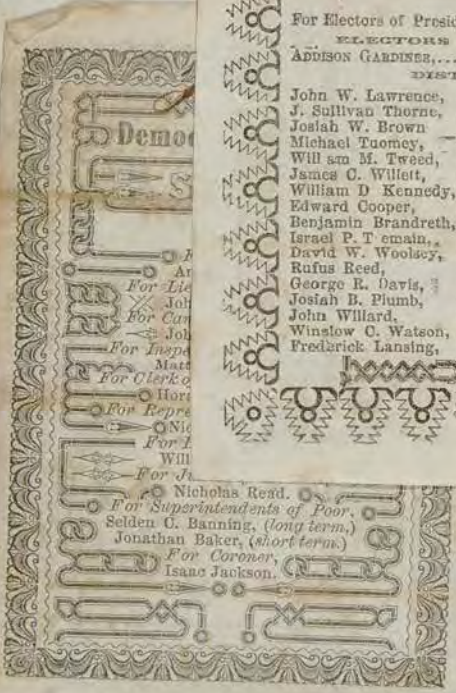 For Electors of Presid
ELECTORS
ADDISON GARDINER,...
DIST
John W. Lawrence,
J. Sullivan Thorne,
Josiah W. Brown
Michael Tuomey,
Will am M. Tweed,
James C. Willett,
William D Kennedy,
Edward Cooper,
Benjamin Brandreth,
Israel P. T emain,
David W. Woolsey,
Rufus Reed,
George R. Davis,
Josiah B. Plumb,
John Willard,
Winslow C. Watson,
Frederick Lansing,
Democ
S
For Lie
Joh
For Can
Joh
For Inspe
Matt
For Clerk o
Hora
For Repre
Nic
Will
For Ju
Nicholas Read.
For Superintendents of Poor,
Selden C. Banning, (long term.)
Jonathan Baker, (short term.)
For Coroner,
Isaac Jackson.